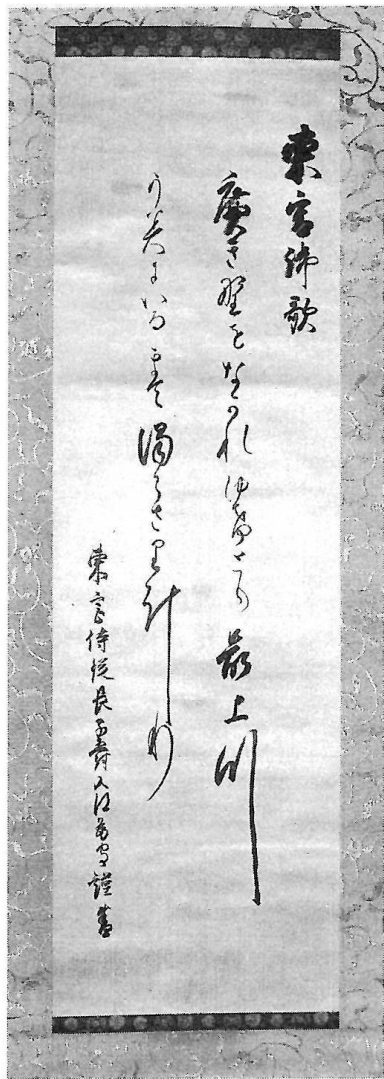 東宮御歌
廣き野をなかれゆけとも最上川
う美にいるまて濁らさり計り
東宮侍従長子爵入江為守謹書